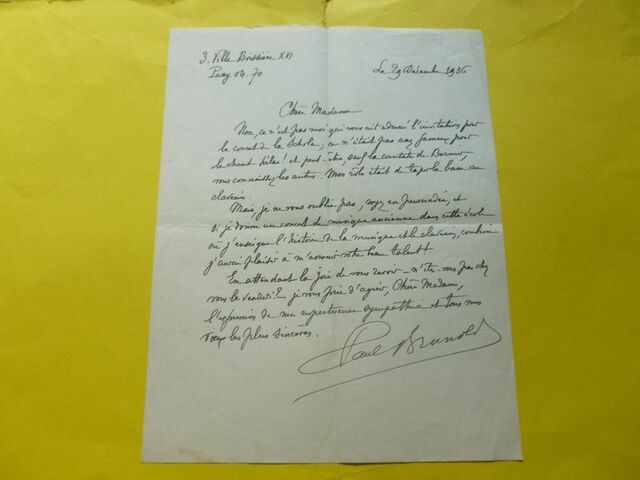 3. Villa Boissière XVI
Passy 04.70
Le 29 Décembre 1936
Chère Madame
Non, ce n'est pas moi qui vous ait adressé l'invitation pour
le concert de la Schola, ce n'était pas aux fameux pour
le chant hélas! et peut-être, sauf la cantate de Bernier,
vous connaissiez les autres. Mon rôle était de taper la basse au
clavecin.
Mais, je ne vous oublie pas, soyez en persuadée, et
si je donne un concert de musique ancienne dans cette école
où j'enseigne l'histoire de la musique et le clavecin, combien
j'aurai plaisir à m'associer votre beau talent!
En attendant la joie de vous revoir – n'êtes-vous pas chez
vous le vendredi? je vous prie d'agréer, Chère Madame,
l'expression de ma respectueuse sympathie et tous mes
vœux les plus sincères.
Paul Brunold